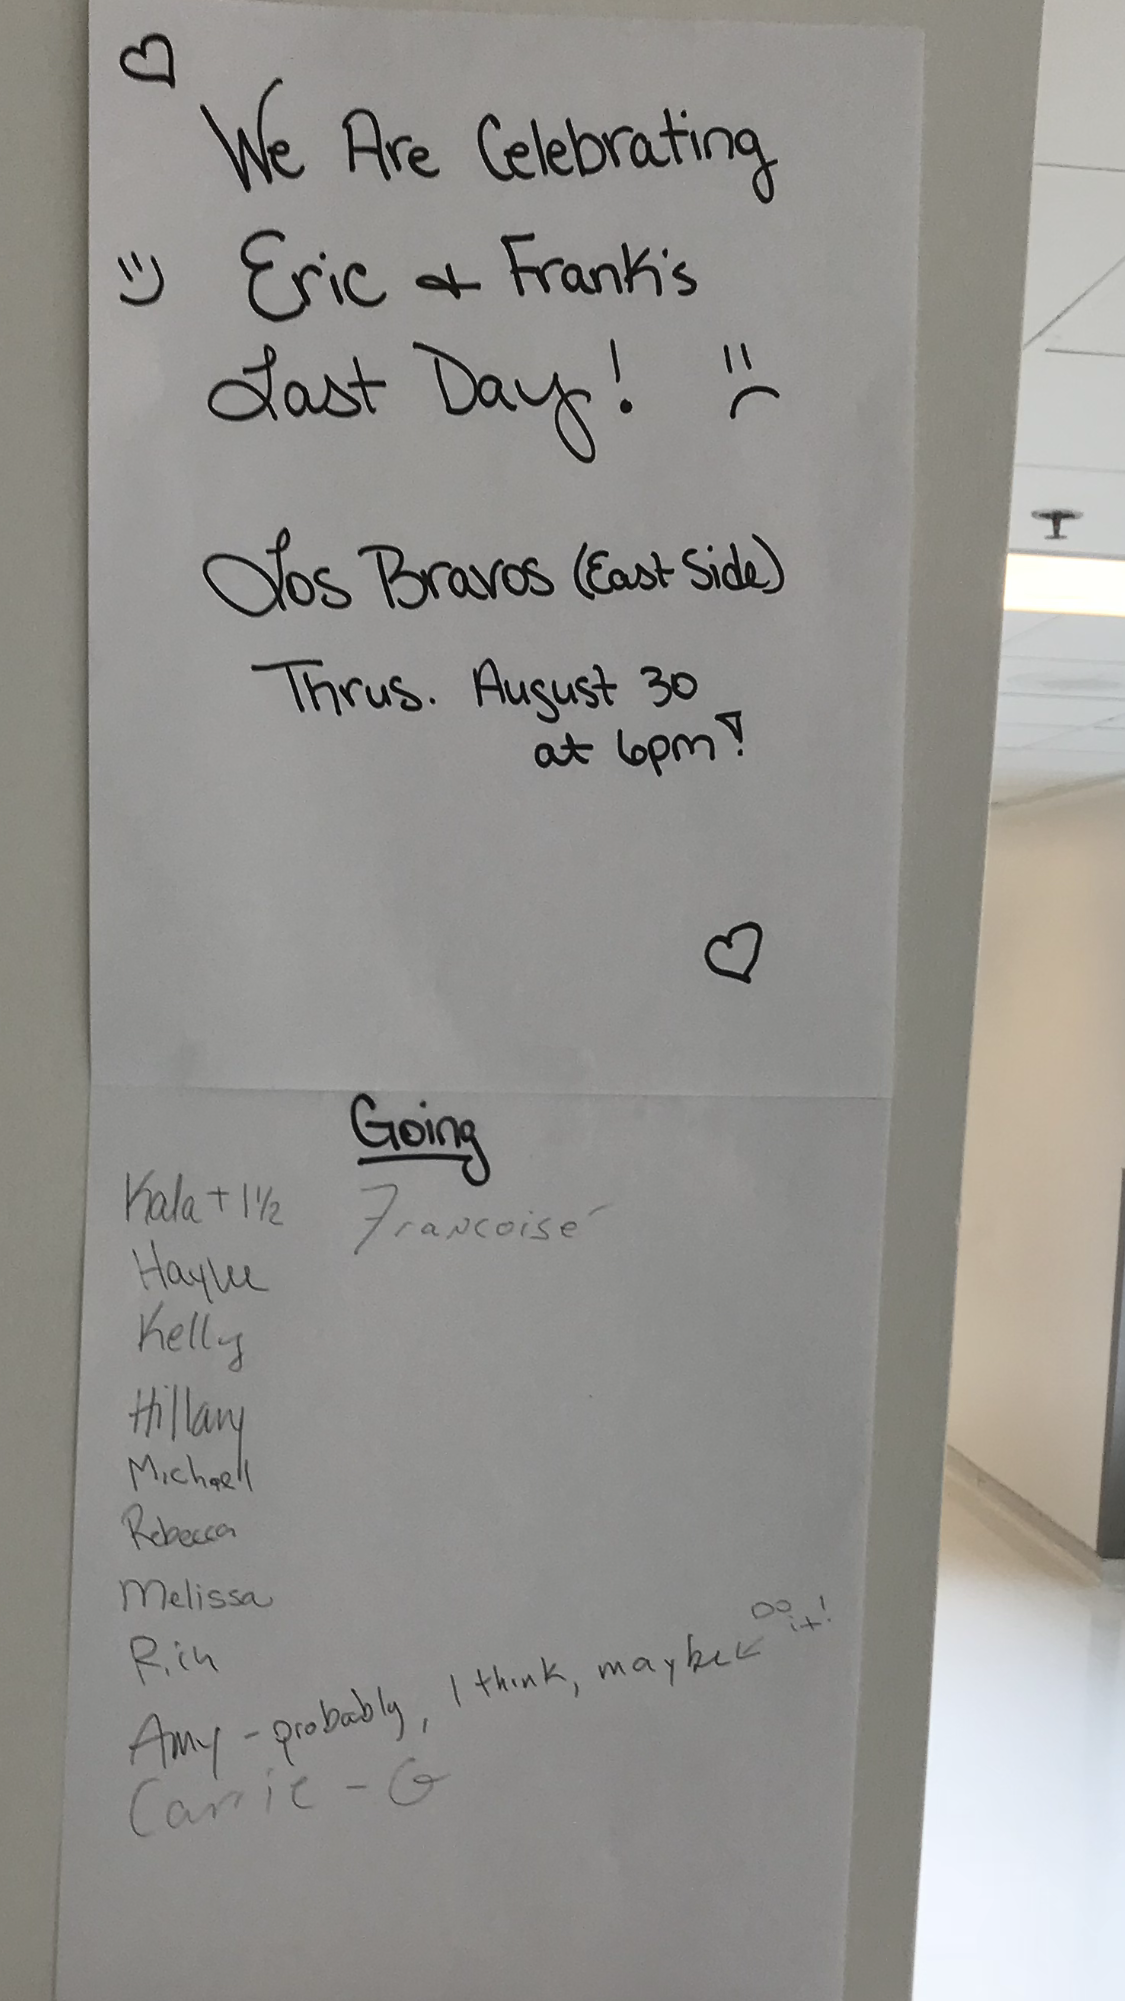 We Are Celebrating
Eric & Frank's
Last Day!
Los Bravos (East Side)
Thrus. August 30
at 6pm!
Going
Kala + 1 1/2
Haylee
Kelly
Hillary
Michaell
Rebecca
Melissa
Rich
Amy - probably, I think, maybe
Do it!
Carrie - G
Francoise